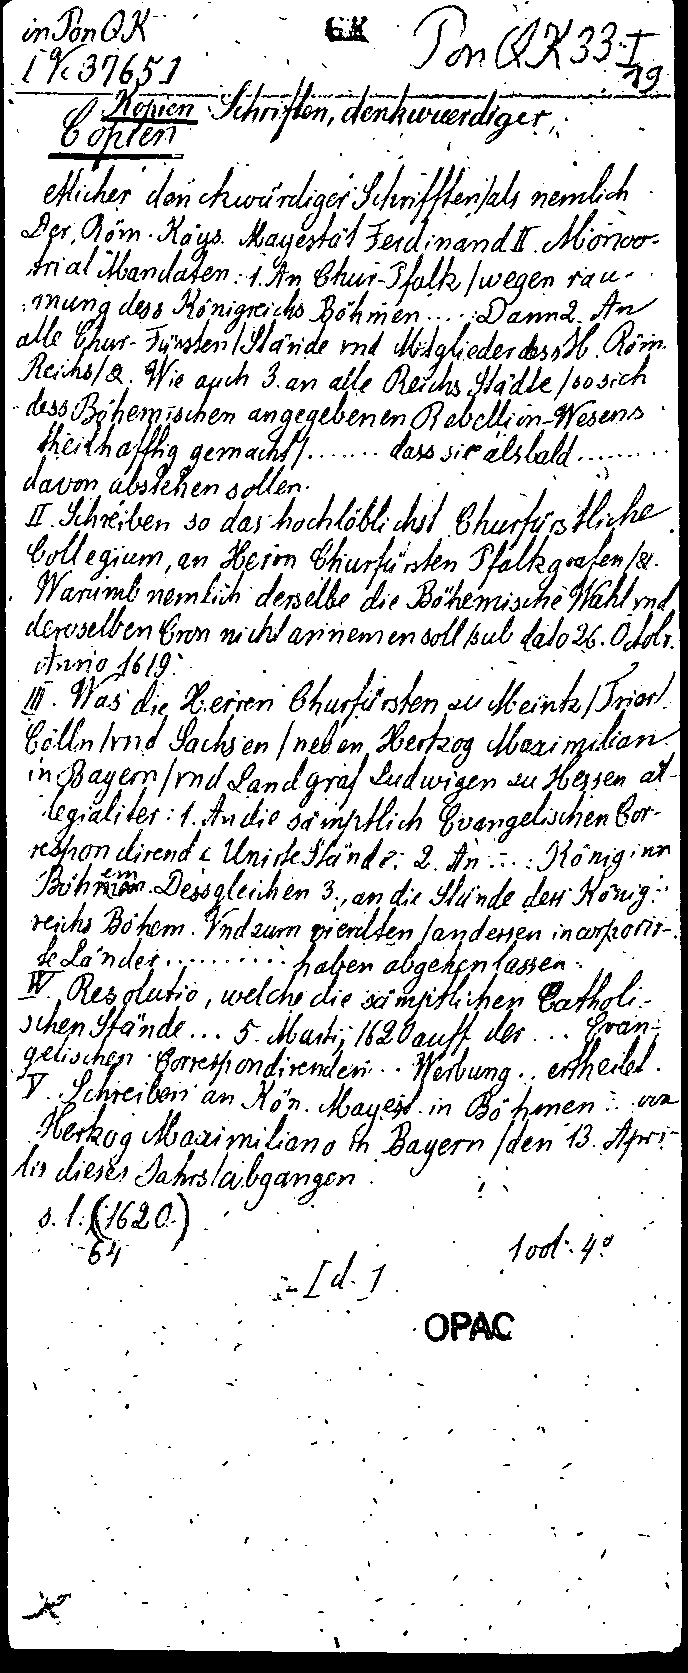 in Pon QK
GK
Pon QK 33-I
[Vc 3765]
19
Kopien Schriften, denkwuerdiger,
Copien
etlicher denckwürdiger Schrifften/als nemlich
Der, Röm. Käys. Mayestät Ferdinand II. Monito-
trial Mandaten: 1. An Chur-Pfaltz/wegen rau-
mung dess Königreichs Böhmen .... Dann 2. An
alle Chur-Fürsten/Stände vnd Mitglieder dess H. Röm.
Reichs/&. Wie auch 3. an alle Reichs Städte/so sich
dess Böhmischen angegebenen Rebellion-Wesens
theilhafftig gemacht/....... dass sie alsbald ........
davon abstehen sollen.
II. Schreiben so das hochlöblichst Churfürstliche
Collegium, an Herrn Churfürsten Pfaltzgrafen/&.
Warumb nemlich derselbe die Böhemische Wahl vnd
deroselben Cron nicht annemen soll/sub dato 26. Octobr.
Anno 1619.
III. Was die Herren Churfürsten zu Meintz/Trier/
Cölln/vnd Sachsen/neben Hertzog Maximilian
in Bayern/vnd Landgraf Ludwigen zu Hessen al-
legialiter: 1. An die sämptlich Evangelischen Cor-
respondirend Unirte Stände: 2. An ....: König inn
Böhmem. Dessgleichen 3., an die Stände dess König-
reichs Böhem. Vnd zum vierdten/an dessen incorporir-
te Länder .......... haben abgehen lassen.
IV. Resolutio, welche die sämptlichen Catholi-
schen Stände ... 5. Martij 1620 auff der ... Evan-
gelischen Correspondirenden .. Werbung .. ertheilet.
V. Schreiben an Kön. Mayest. in Böhmen .. von
Hertzog Maximiliano in Bayern/den 13. Apri-
lis dieses Jahrs/abgangen
s. l. (1620.)
64
1 vol. 4°
[d.]
OPAC